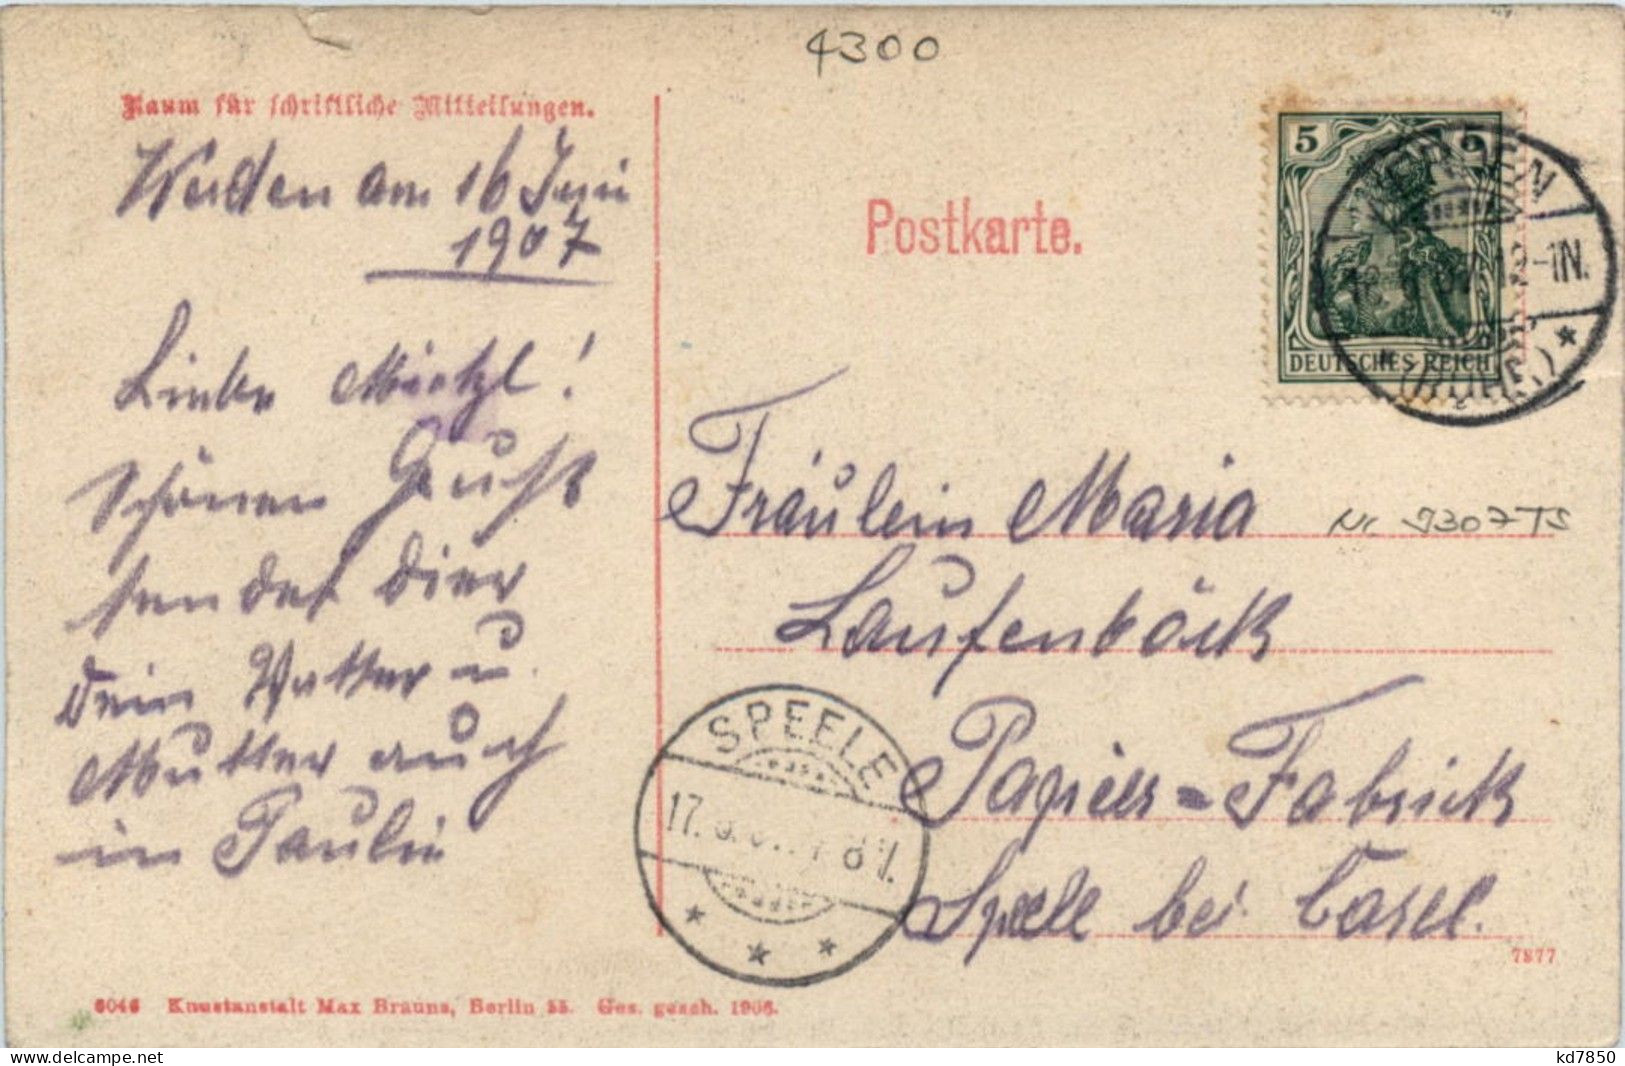 4300
Raum für schriftliche Mitteilungen.
Werden am 16 Juni
1907
Liebe Mietzl!
Schönen Gruß
sendet dier
dein Vatter u.
Mutter auch
Paulin
Postkarte.
5 5
DEUTSCHES REICH
WERDEN
12-1N.
(RUHR)
Fräulein Maria
Nr. 9307TS
Laufenböck
Papier=Fabrick
Speele bei Casel.
SPEELE
17.
7877
6046 Kunstanstalt Max Brauns, Berlin 55. Ges. gesch. 1906.
www.delcampe.net
kd7850